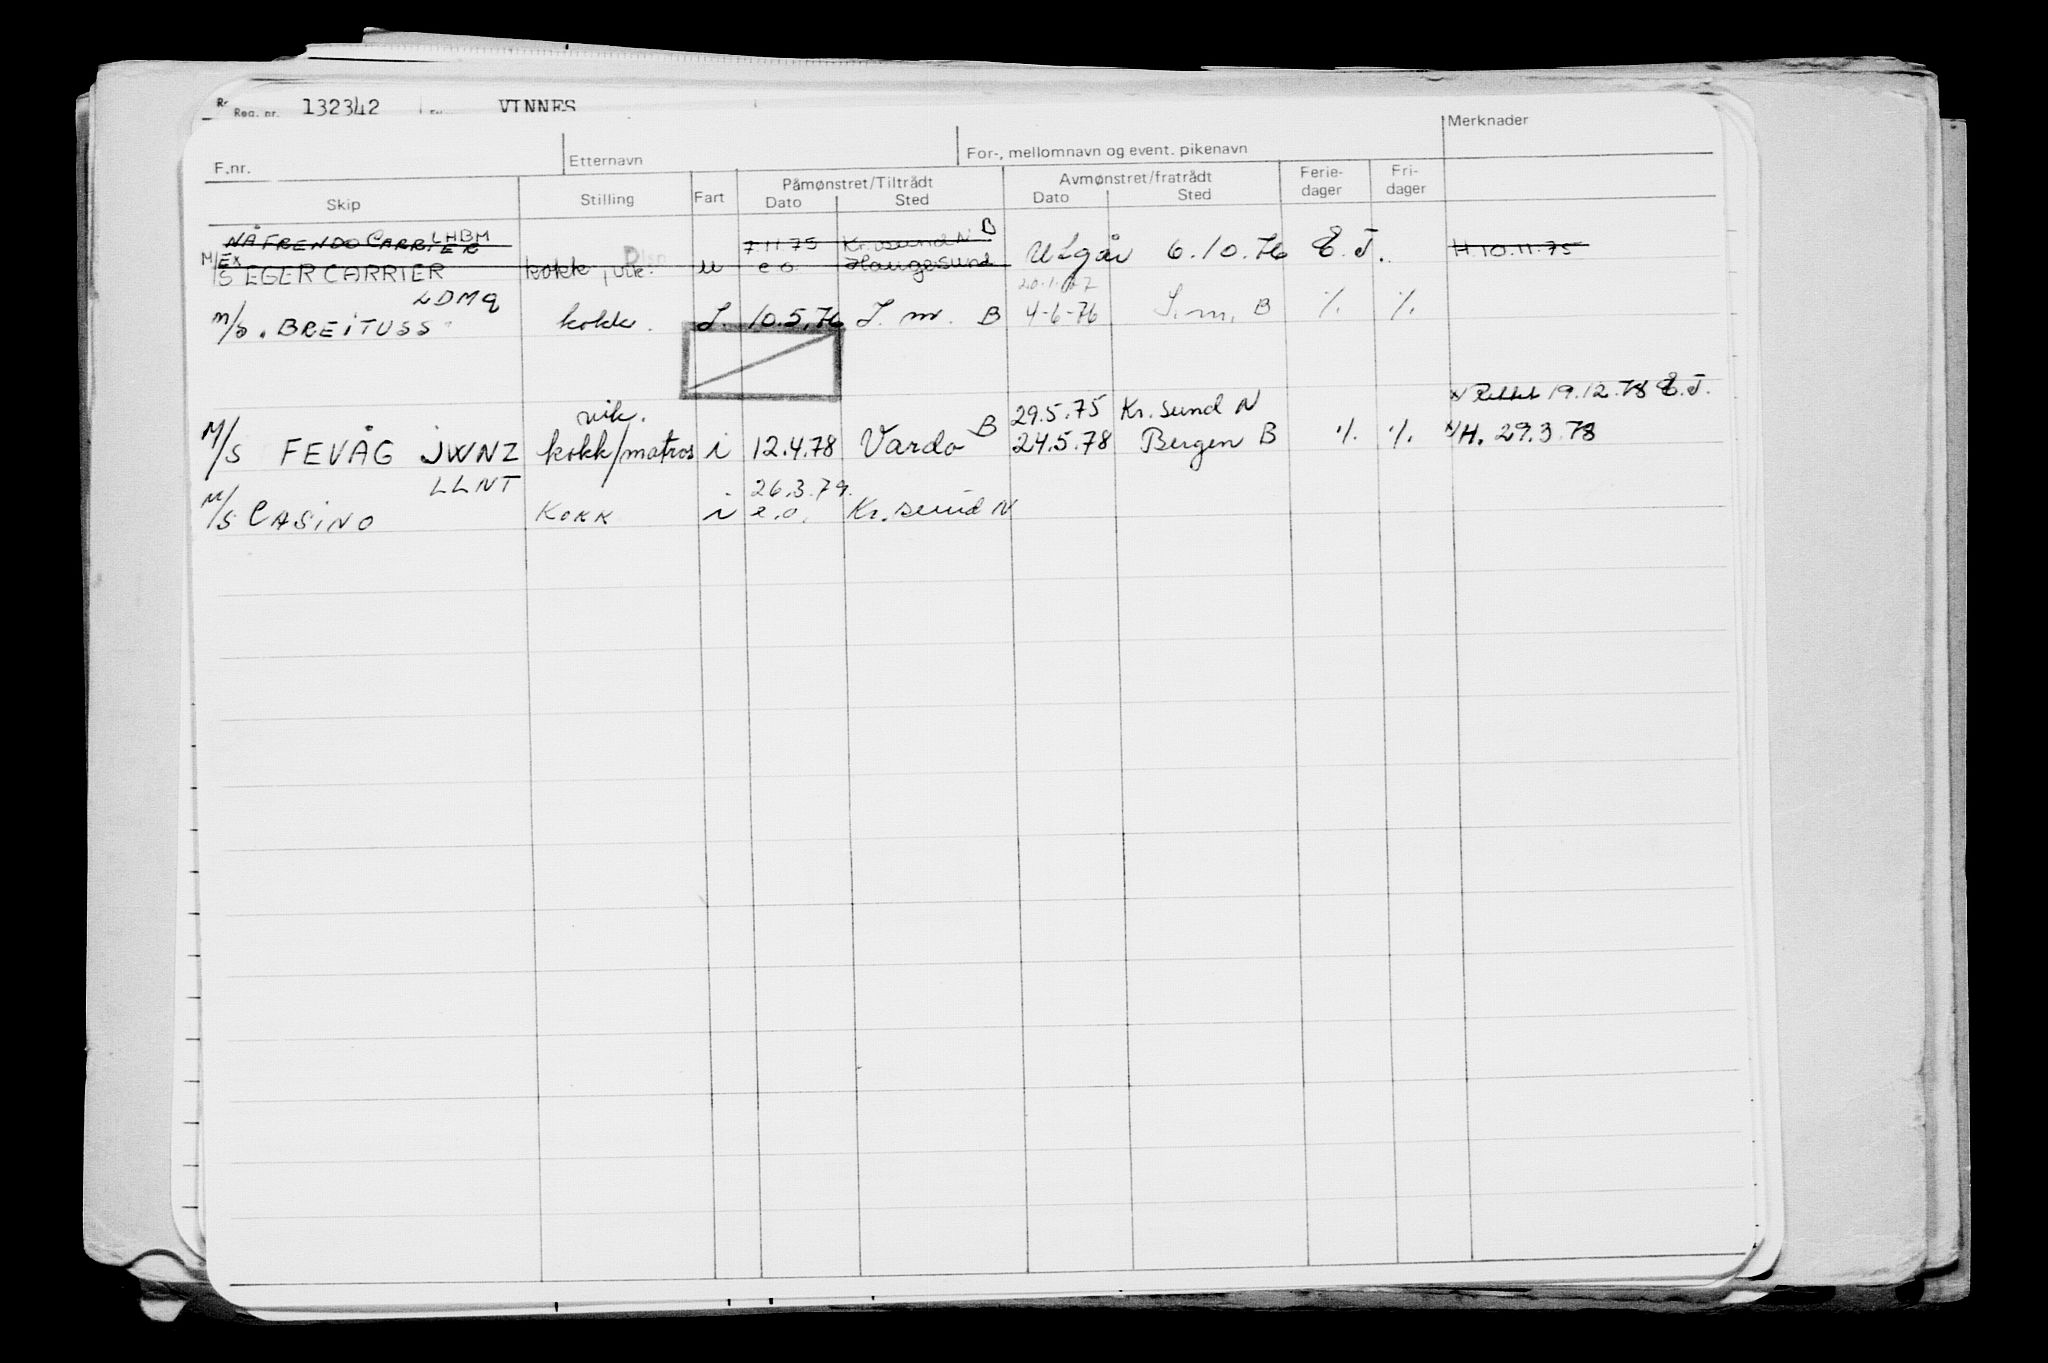 Reg. nr. 132342 VINNES
Merknader
F.nr. Etternavn For-, mellomnavn og event. pikenavn
Skip Stilling Fart Påmønstret/Tiltrådt Dato Sted Avmønstret/fratrådt Dato Sted Ferie-dager Fri-dager
NÅFRENDO CARRIER LHBM 7.11.75 Kr.sund N B
M/S EX EGER CARRIER kokk, vik. u e.o. Haugesund Utgår 6.10.76 E.J. H.10.11.75
LDMQ
M/S. BREITUSS kokk. I. 10.5.76 I. m. B 4-6-76 I. m. B ./. ./.
Rettet 19.12.78 E.J.
vik. 29.5.75 Kr. sund N
M/S FEVÅG JWNZ kokk/matros i 12.4.78 Vardø B 24.5.78 Bergen B ./. ./. H. 29.3.78
LLNT 26.3.79.
M/S CASINO KOKK i e.o. Kr. sund N